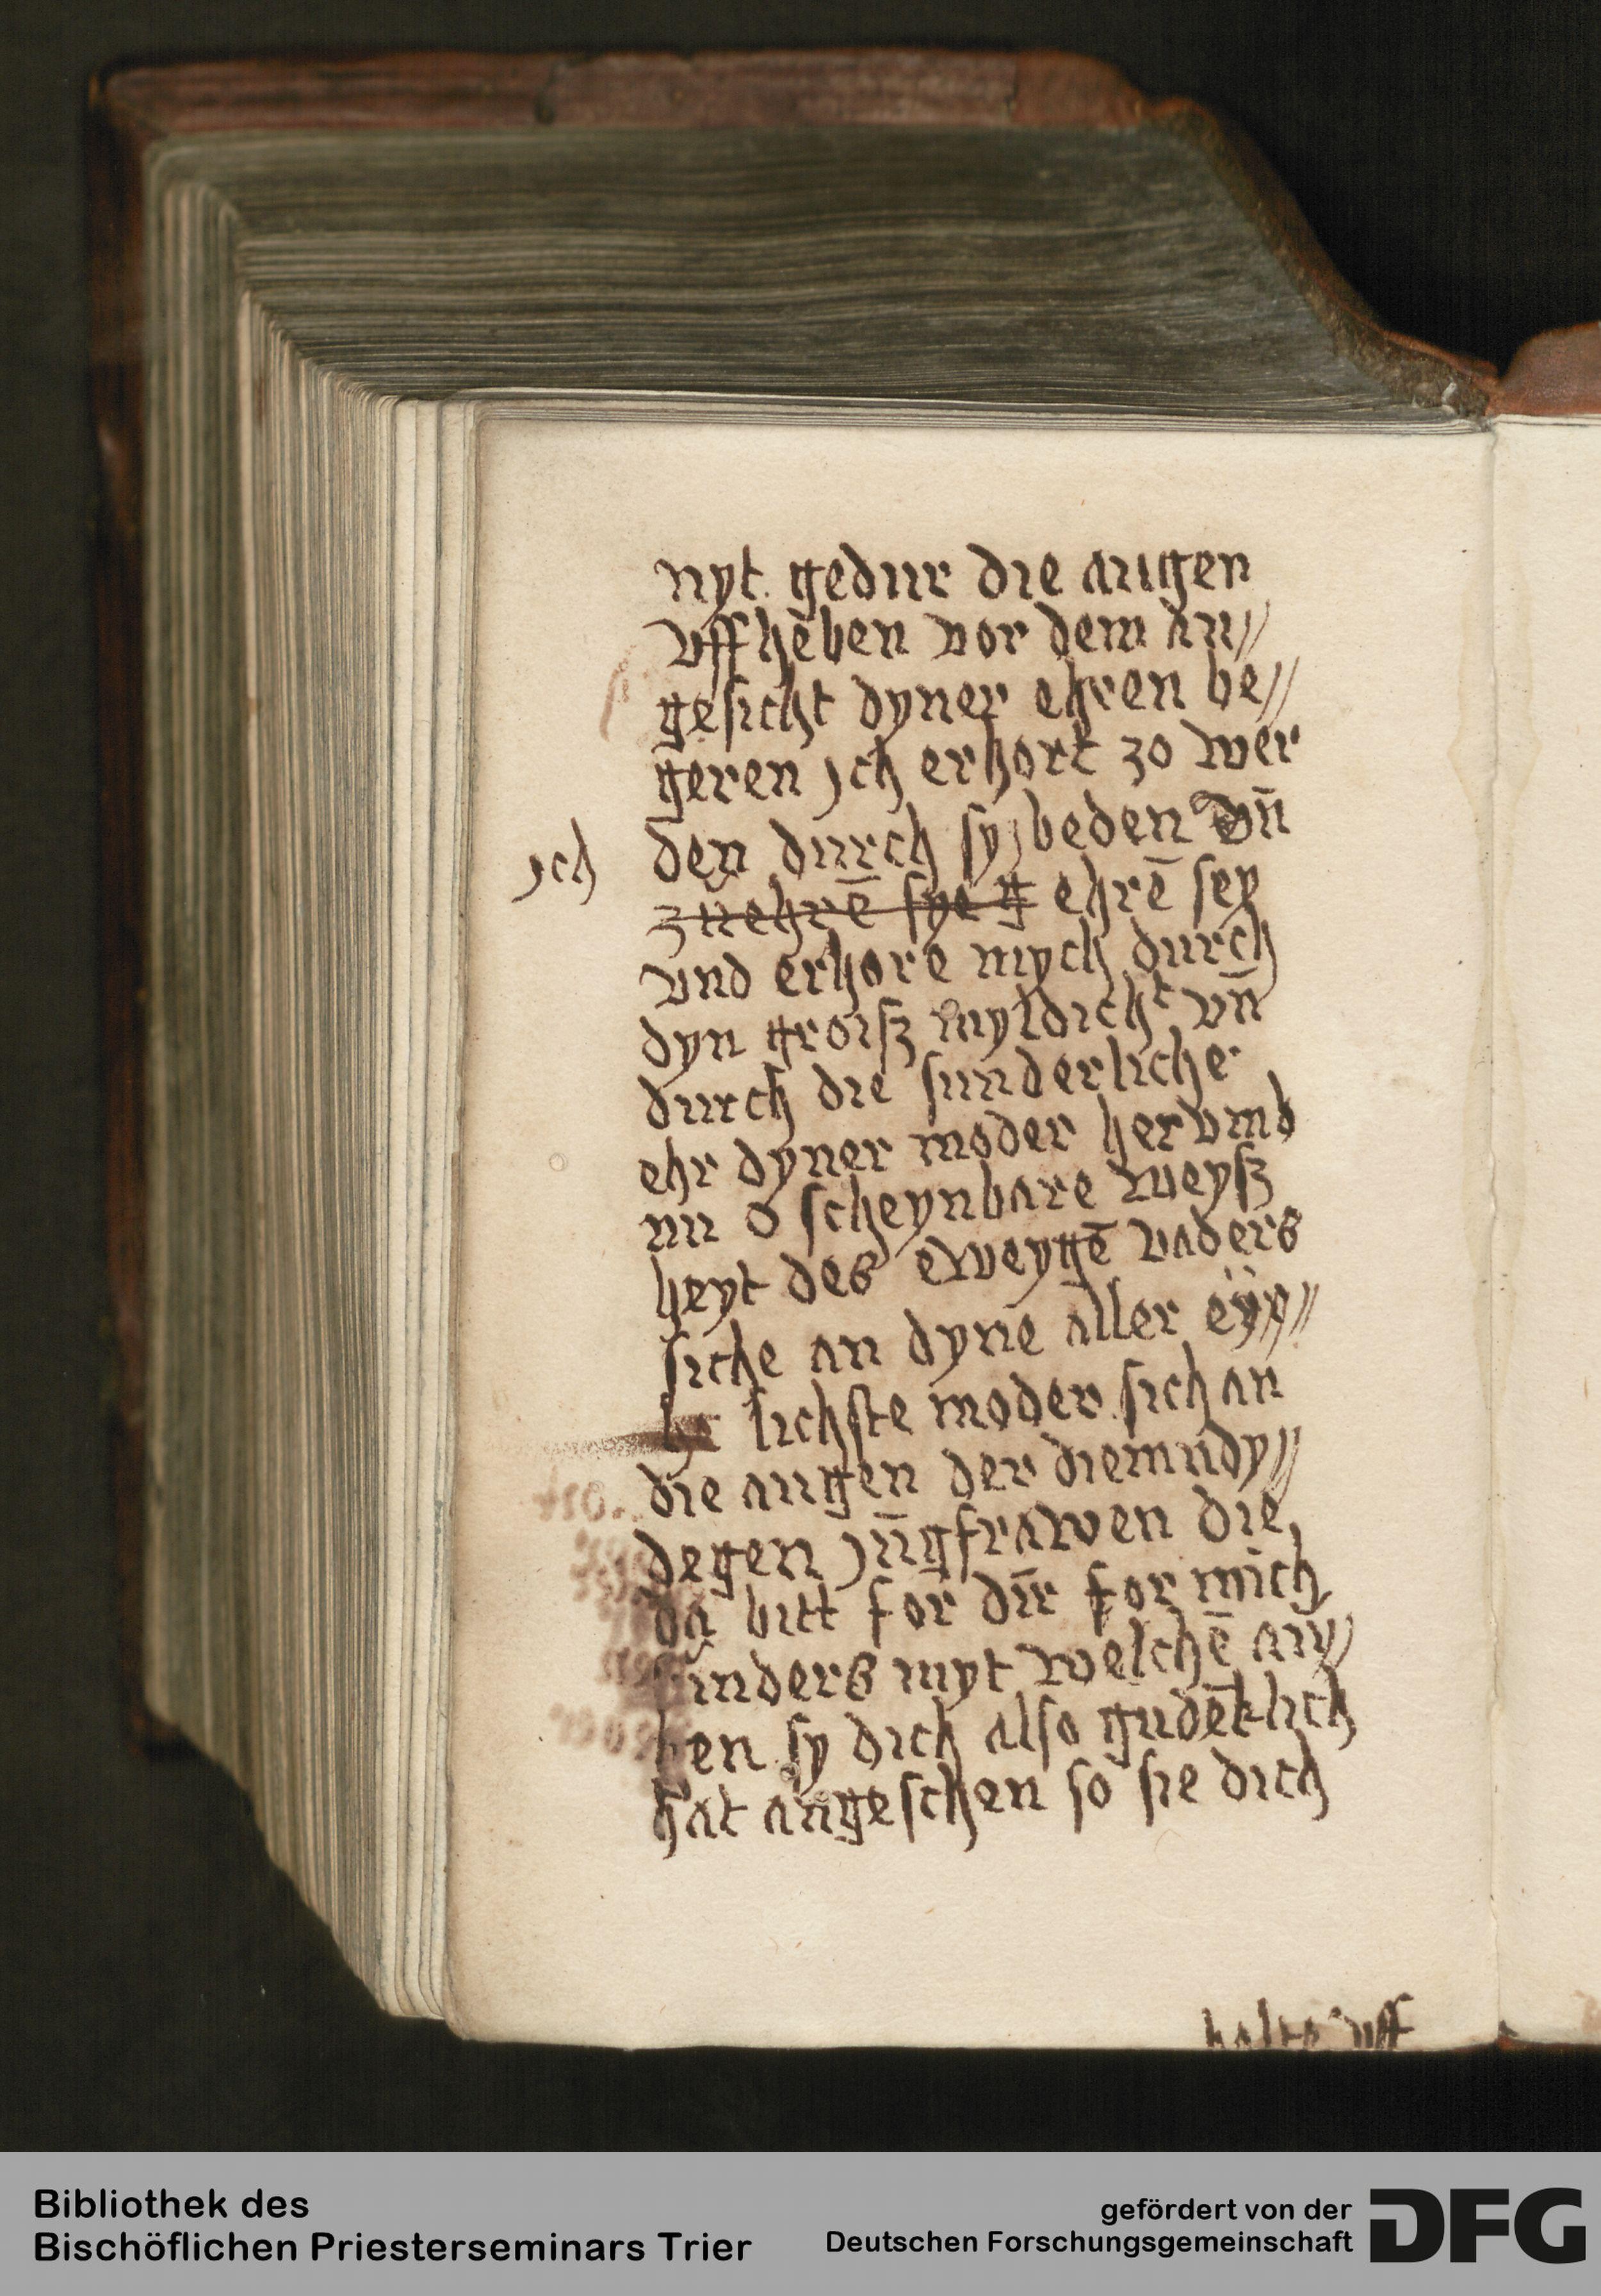 nyt gedur die augen
vffheben vor dem an//
gesicht dyner ehren be//
geren jch erhort zo wer
den durch sy beden vn̄
jch
zu ehrē sye g ehrē sey
vnd erhore mych durch
dyn groisz myldicht vn̄
durch die sunderliche
ehr dyner moder her vmb
nu o scheynbare weysz
heyt des eweygē vaders
siche an dyne aller eÿr//
lichste moder sich an
die augen der diemudy//
degen jūgfrawen die
da bitt for dir for mich
sunders myt welchē au//
hen sy dich also gudētlich
hat angeschen so sie dich
halte vff
Bibliothek des
Bischöflichen Priesterseminars Trier
gefördert von der
Deutschen Forschungsgemeinschaft
DFG